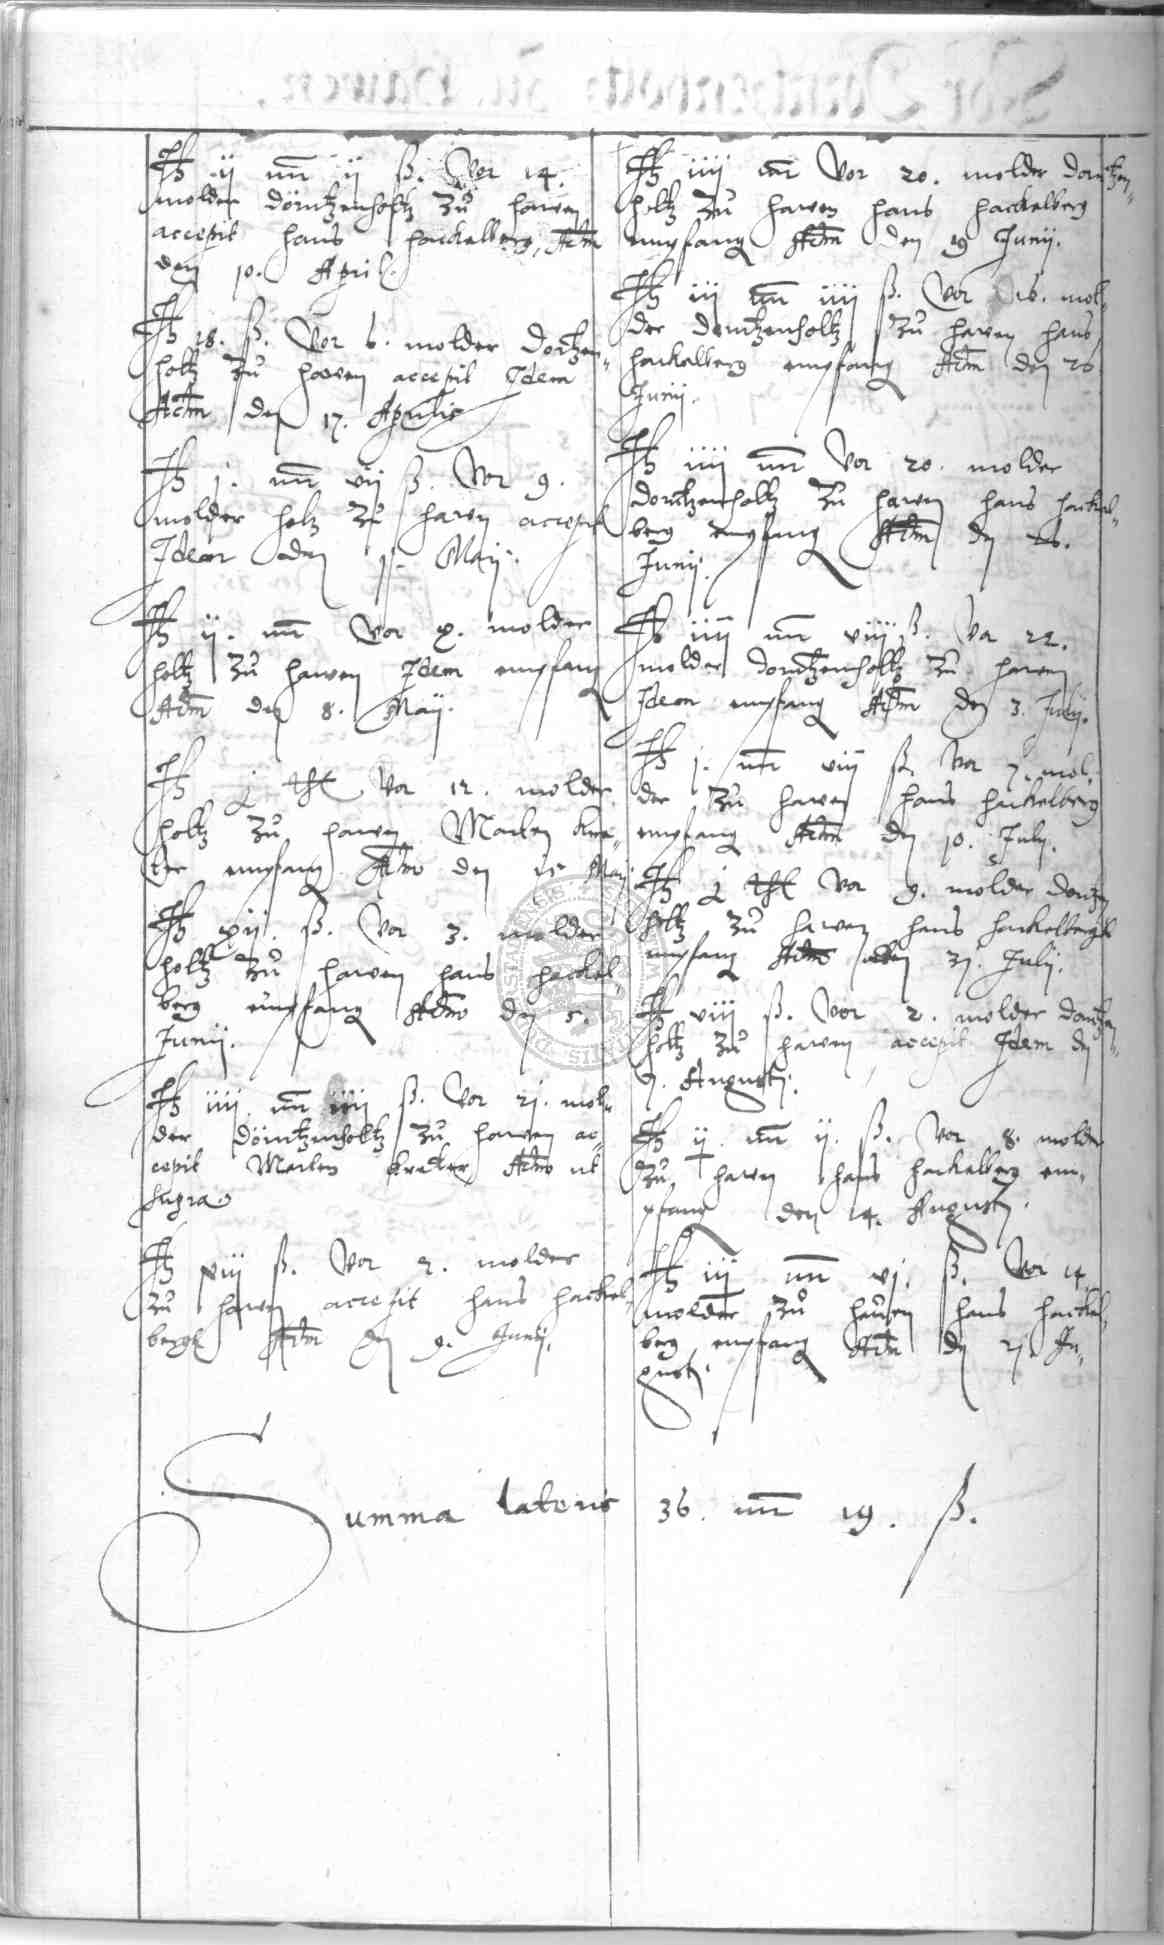 It ij mr ij ß. Vor 14.
molder dörntzenholtz zu hawen
accepit hans hackelberg, Actum
den 10. April.
It 18. ß. Vor 6. molder dorntzen-
holtz zu hawen accepit Idem
Actum den 17. Aprilis
It j. mr vij ß. Vor 9.
molder holz zu hawen accepit
Idem den 1. Maij.
It ij. mr Vor x. molder
holtz zu hawen Idem empfang
Actum den 8. Maij.
It j thl Vor 12. molder
holtz zu hawen Marten kre-
ter empfang Actum den 15 Maij
It xij. ß. Vor 3. molder
holtz zu hawen hans hackel-
berg empfang Actum den 5.
Junij.
It iiij mr iiij ß. Vor 21. mol-
der dörntzenholtz zu hawen ac-
cepit Marten kreter Actum ut
supra
It viij ß. Vor 2. molder
zu hawen accepit hans hackel-
bergk Actum den 9. Junij.
It iiij mr Vor 20. molder dorntzen-
holtz zu hawen hans hackelberg
empfang Actum den 19 Junij.
It iij mr iiij ß. Vor 16. mol-
der dorntzenholtz zu hawen hans
hackelberg empfang Actum den 26
Junij.
It iiij mr Vor 20. molder
dorntzenholtz zu hawen hans hackel-
berg empfang Actum den 26.
Junij.
It iiij mr viij ß. Vor 22.
molder dorntzenholtz zu hawen
Idem empfang Actum den 3. Julij.
It j. mr viij ß. Vor 7. mol-
der zu hawen hans hackelberg
empfang Actum den 10. Julij.
It j thl Vor 9. molder dorntzen
holtz zu hawen hans hackelbergk
empfang Actum den 31. Julij.
It viij ß. Vor 2. molder dorntzen-
holtz zu hawen accepit Idem den
7. Augusti.
It ij. mr ij. ß. Vor 8. molder
zu hawen hans hackelberg em-
pfang den 14. Augusti.
It iij mr vj. ß. Vor 14
molder zu hauen hans hackel-
berg empfang Actum den 21. Au-
gusti.
Summa lateris 36. mr 19. ß.